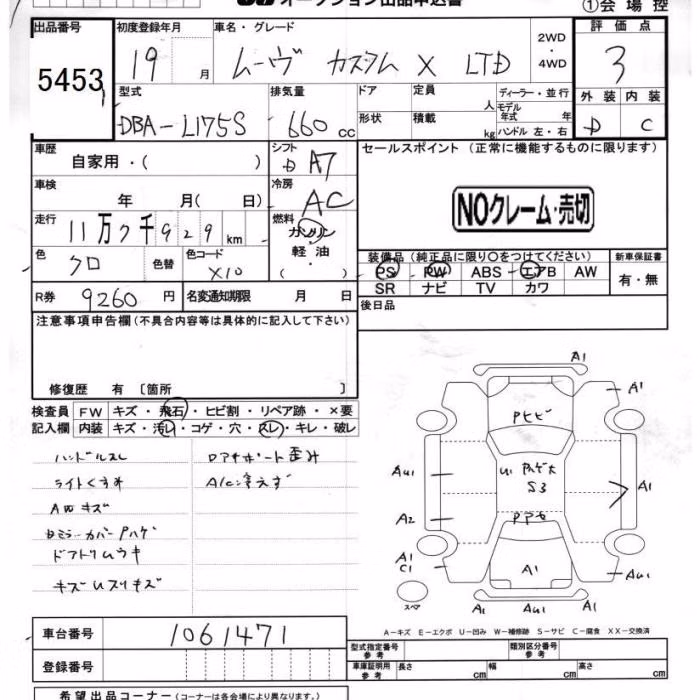 オークション出品申込書
①会場控
出品番号
5453
初度登録年月
19
月
車名・グレード
ムーヴ カスタム X LTD
2WD
・
4WD
評価点
3
外装 内装
D C
型式
DBA-L175S
排気量
660 cc
ドア
定員
人
形状
積載
kg
ディーラー・並行
モデル
年式 年
ハンドル 左・右
車歴
自家用・( )
シフト
D A7
セールスポイント (正常に機能するものに限ります)
車検
年 月( 日)
冷房
AC
NOクレーム・売切
走行
11万7千929km
燃料
ガソリン
軽油
( )
色
クロ
色替
色コード
X10
装備品 (純正品に限り○をつけてください)
新車保証書
PS PW ABS エアB AW
SR ナビ TV カワ
有・無
R券
9260円
名変通知期限 月 日
後日品
注意事項申告欄 (不具合内容等は具体的に記入して下さい)
修復歴 有 [箇所 ]
検査員
記入欄
FW キズ・飛石・ヒビ割・リペア跡・×要
内装 キズ・汚レ・コゲ・穴・スレ・キレ・破レ
ハンドルスレ
ライトくすみ
A四キズ
ドアトリムウキ
歪み
A/C冷えず
A1
A1
AU1
A2
A1
C1
U1
S3
A1
A1
AU1
A1
AU1
A1
スペア
A-キズ E-エクボ U-凹み W-補修跡 S-サビ C-腐食 XX-交換済
車台番号
1061471
登録番号
型式指定番号
参考
類別区分番号
参考
車庫証明用
参考
長さ cm
幅 cm
高さ cm
希望出品コーナー (コーナーは各会場により異なります。)